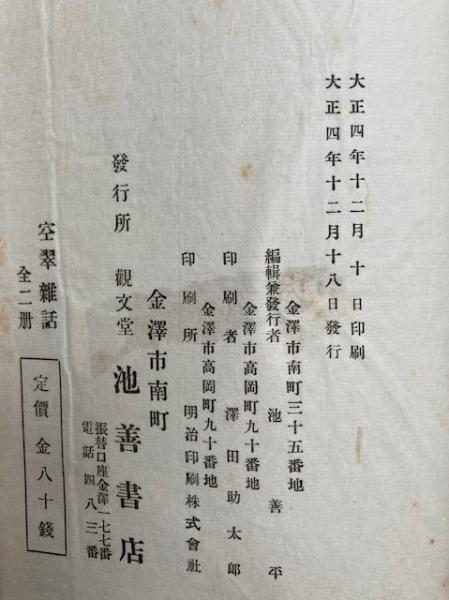 大正四年十二月十日印刷
大正四年十二月十八日發行
金澤市南町三十五番地
編輯兼發行者 池善平
金澤市高岡町九十番地
印刷者 澤田助太郎
金澤市高岡町九十番地
印刷所 明治印刷株式會社
金澤市南町
發行所 觀文堂 池善書店
振替口座金澤一七七番
電話四八三番
空翠雜話
全二册
定價金八十錢